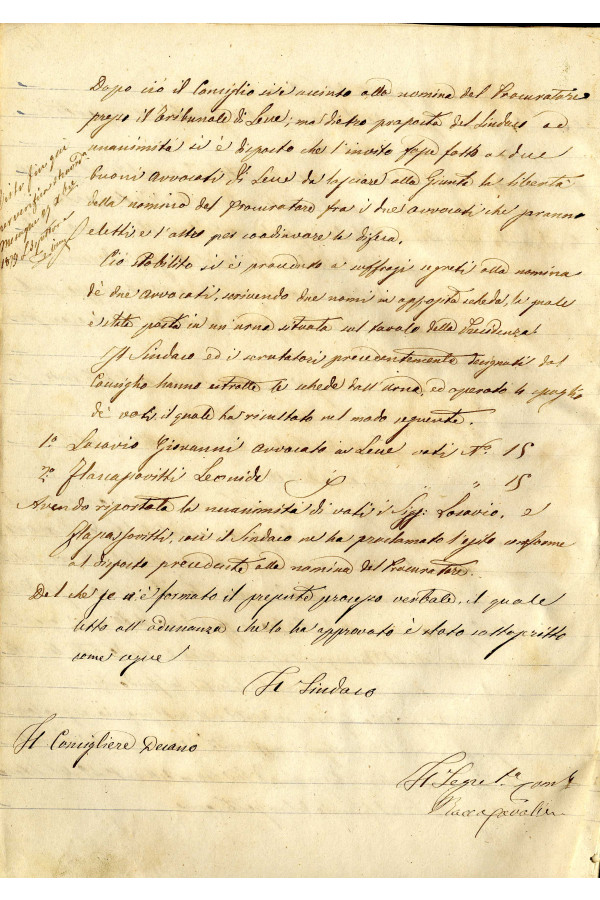 Dopo ciò il Consiglio si è accinto alla nomina del Procuratore
presso il Tribunale di Lecce; ma dietro proposta del Sindaco ed
unanimità si è disposto che l'invito fosse fatto a due
buoni avvocati di Lecce da lasciare alla Giunta la libertà
della nomina del Procuratore fra i due avvocati che saranno
eletti e l'altro per coadiuvare la difesa.
Ciò stabilito si è proceduto a suffragi segreti alla nomina
de' due avvocati, scrivendo due nomi in apposita scheda, la quale
è stata posta in un'urna situata sul tavolo della Presidenza.
Il Sindaco ed i scrutatori precedentemente designati dal
Consiglio hanno estratte le schede dall'urna, ed operato lo spoglio
de' voti, il quale ha risultato nel modo seguente.
1.º Losavio Giovanni avvocato in Lecce voti N.º 15
2.º Flascassovitti Leonida " " 15
Avendo riportata la unanimità di voti i Sigg: Losavio, e
Flascassovitti, così il Sindaco ne ha proclamato l'esito conforme
al disposto precedente alla nomina del Procuratore.
Del che se n'è formato il presente processo verbale, il quale
letto all'adunanza che lo ha approvato è stato sottoscritto
come segue
Il Sindaco
Il Consigliere Decano
Il Segret.º